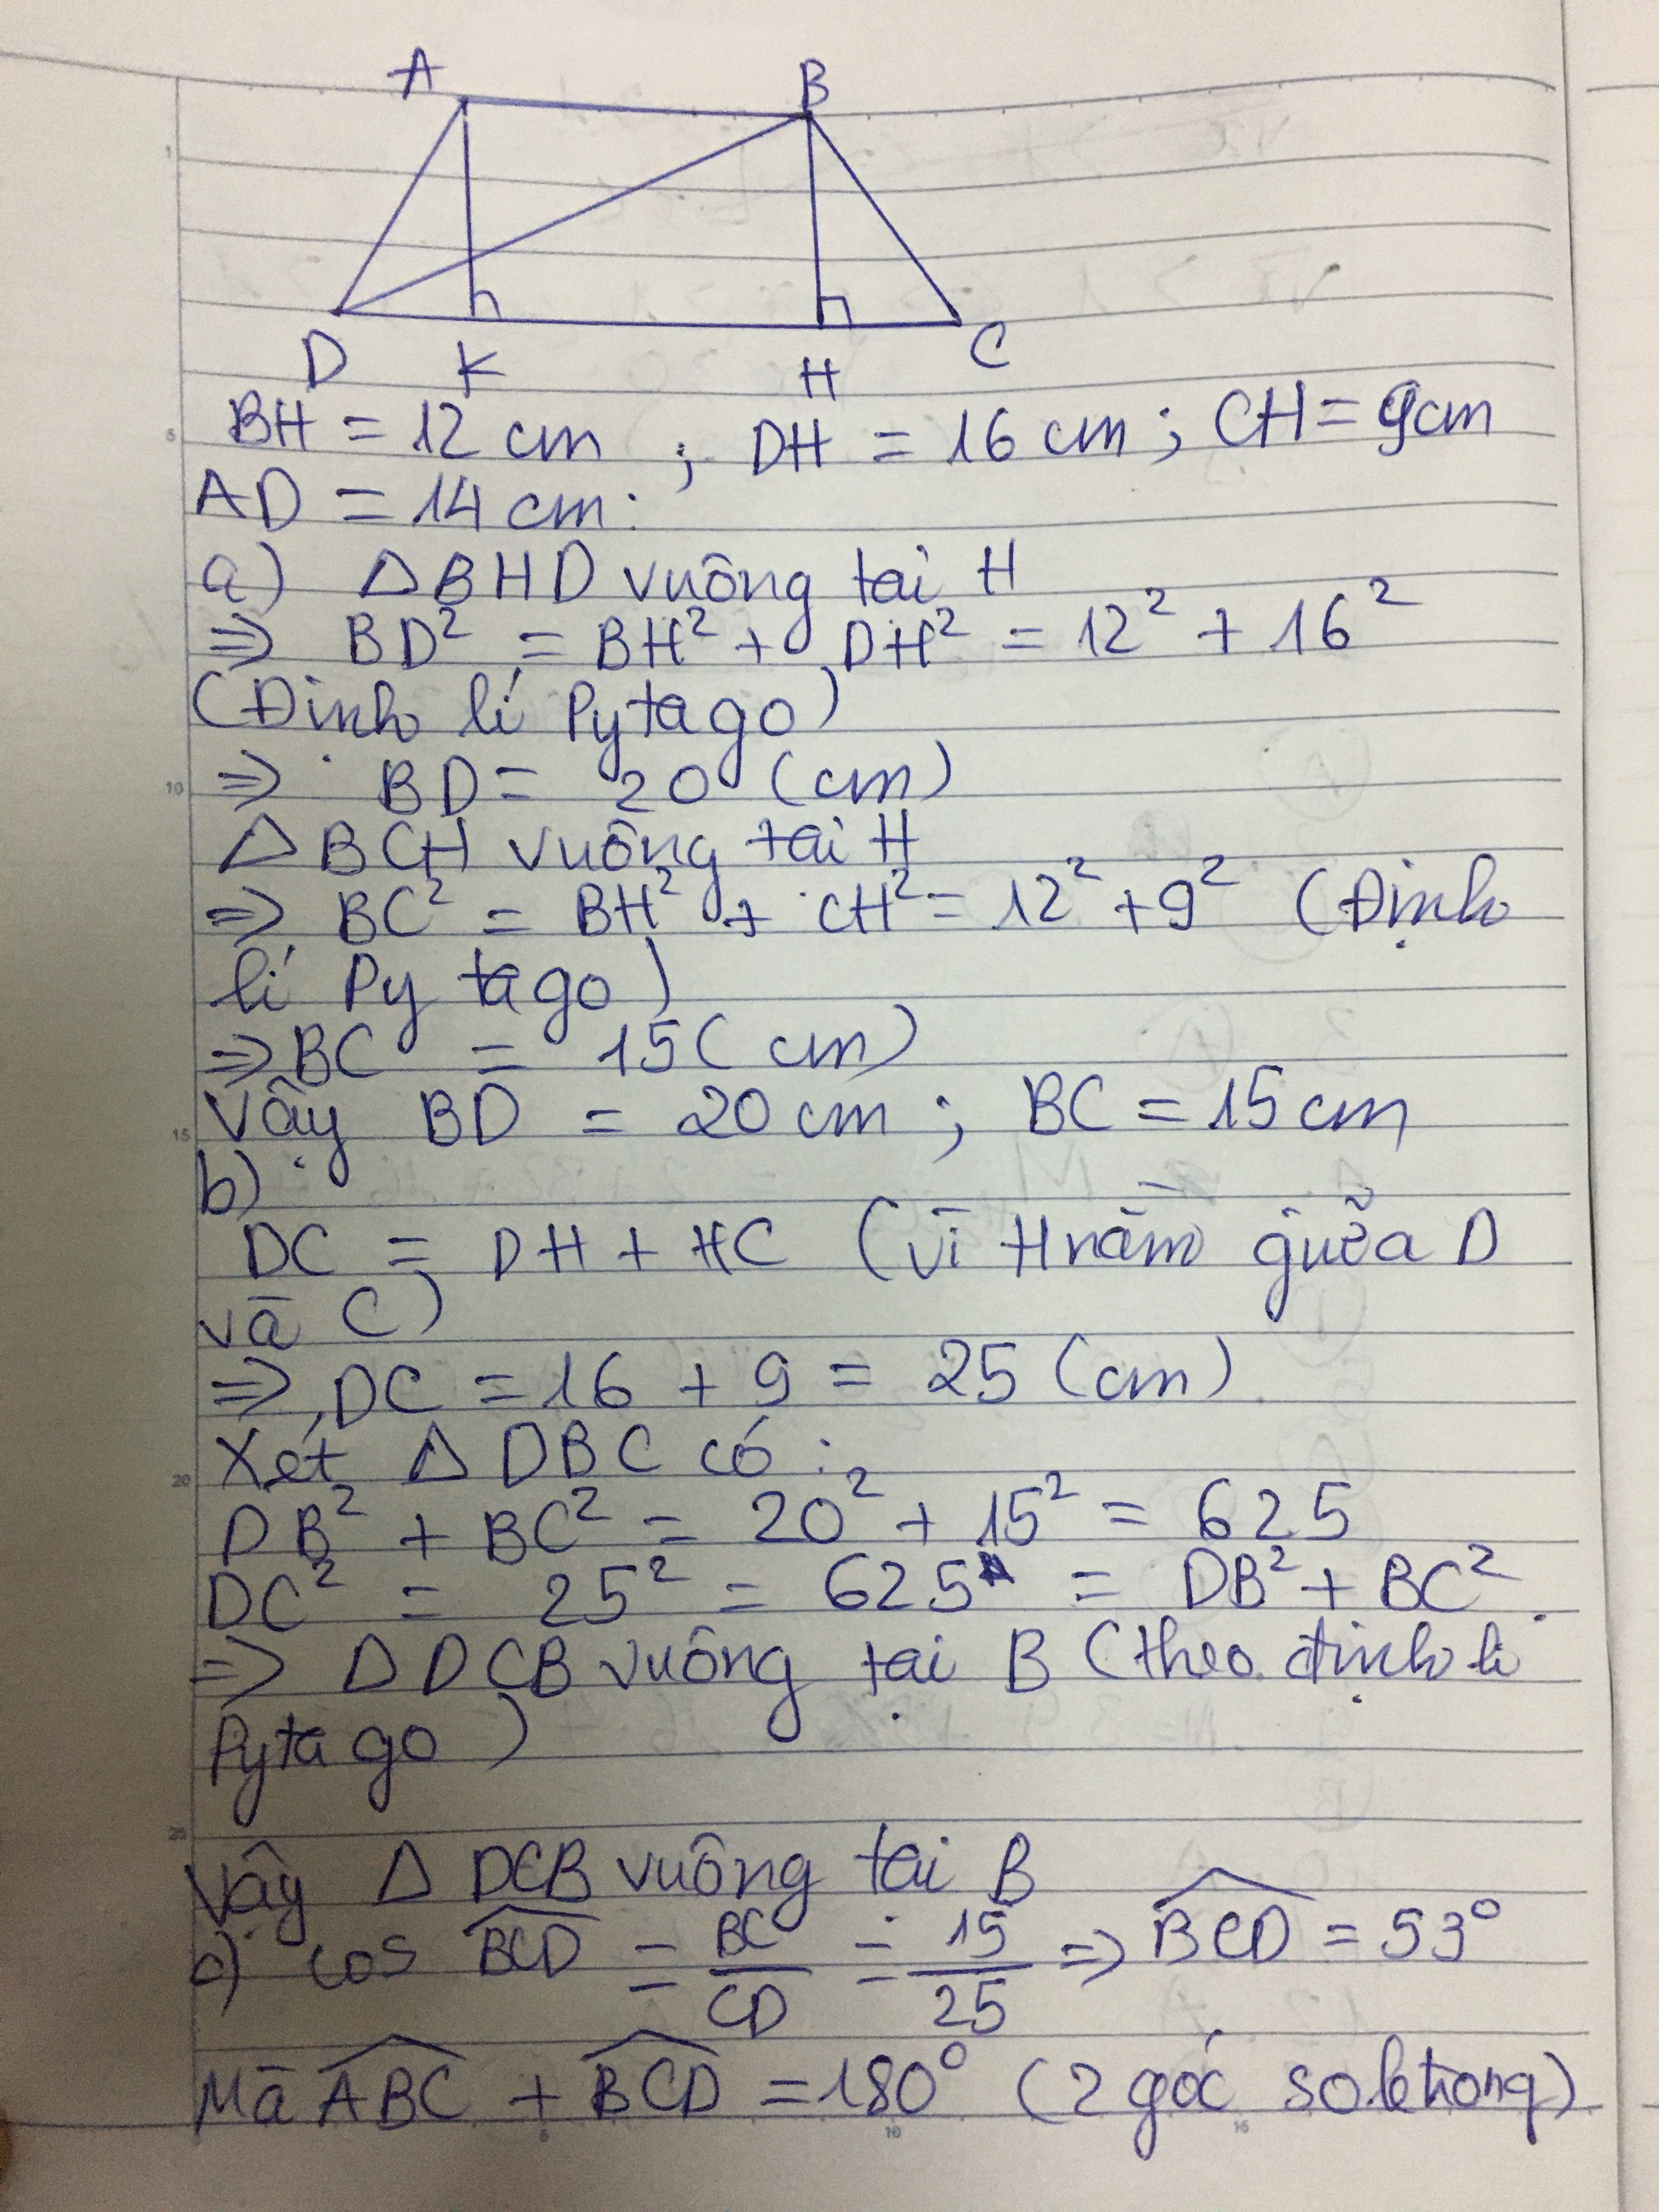 A B
D K H C
BH = 12 cm ; DH = 16 cm ; CH = 9cm
AD = 14 cm.
a) △BHD vuông tại H
=> BD² = BH² + DH² = 12² + 16²
(Định lí Pytago)
=> BD = 20 (cm)
△BCH vuông tại H
=> BC² = BH² + CH² = 12² + 9² (Định
lí Pytago)
=> BC = 15 (cm)
Vậy BD = 20 cm ; BC = 15 cm
b)
DC = DH + HC (vì H nằm giữa D
và C)
=> DC = 16 + 9 = 25 (cm)
Xét △ DBC có :
DB² + BC² = 20² + 15² = 625
DC² = 25² = 625 = DB² + BC².
=> △ DCB vuông tại B (theo định lí
Pytago)
Vậy △ DCB vuông tại B
c) cos \widehat{BCD} = BC/CD = 15/25 => \widehat{BCD} = 53°
Mà \widehat{ABC} + \widehat{BCD} = 180° (2 góc so le trong)